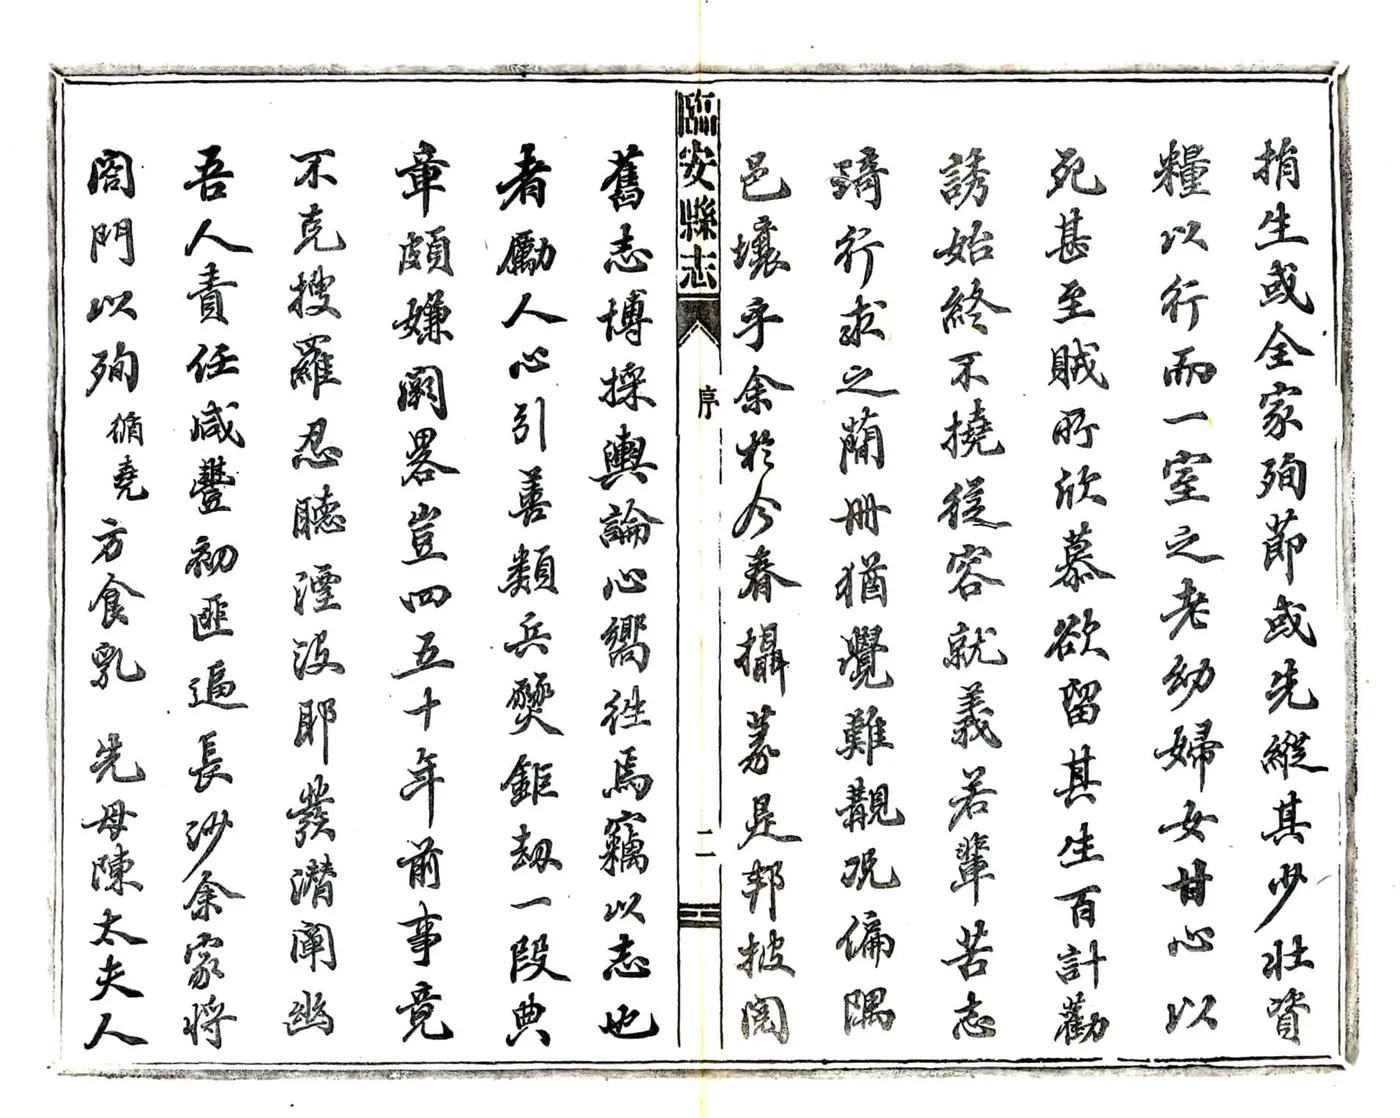 捐生或全家殉節或先縱其少壯資
糧以行而一室之老幼婦女甘心以
死甚至賊所欣慕欲留其生百計勸
誘始終不撓從容就義若輩苦志
琦行求之蕳冊猶覺難覯况偏隅
邑壤乎余於今春攝篆是邦披閱
臨安縣志
序
二
舊志博採輿論心嚮徃焉竊以志也
者勵人心引善類兵燹鉅刼一段典
章頗嫌闕畧豈四五十年前事竟
不克搜羅忍聽湮没耶發潛闡幽
吾人責任咸豐初匪逼長沙余家將
闔門以殉循堯方食乳 先母陳太夫人